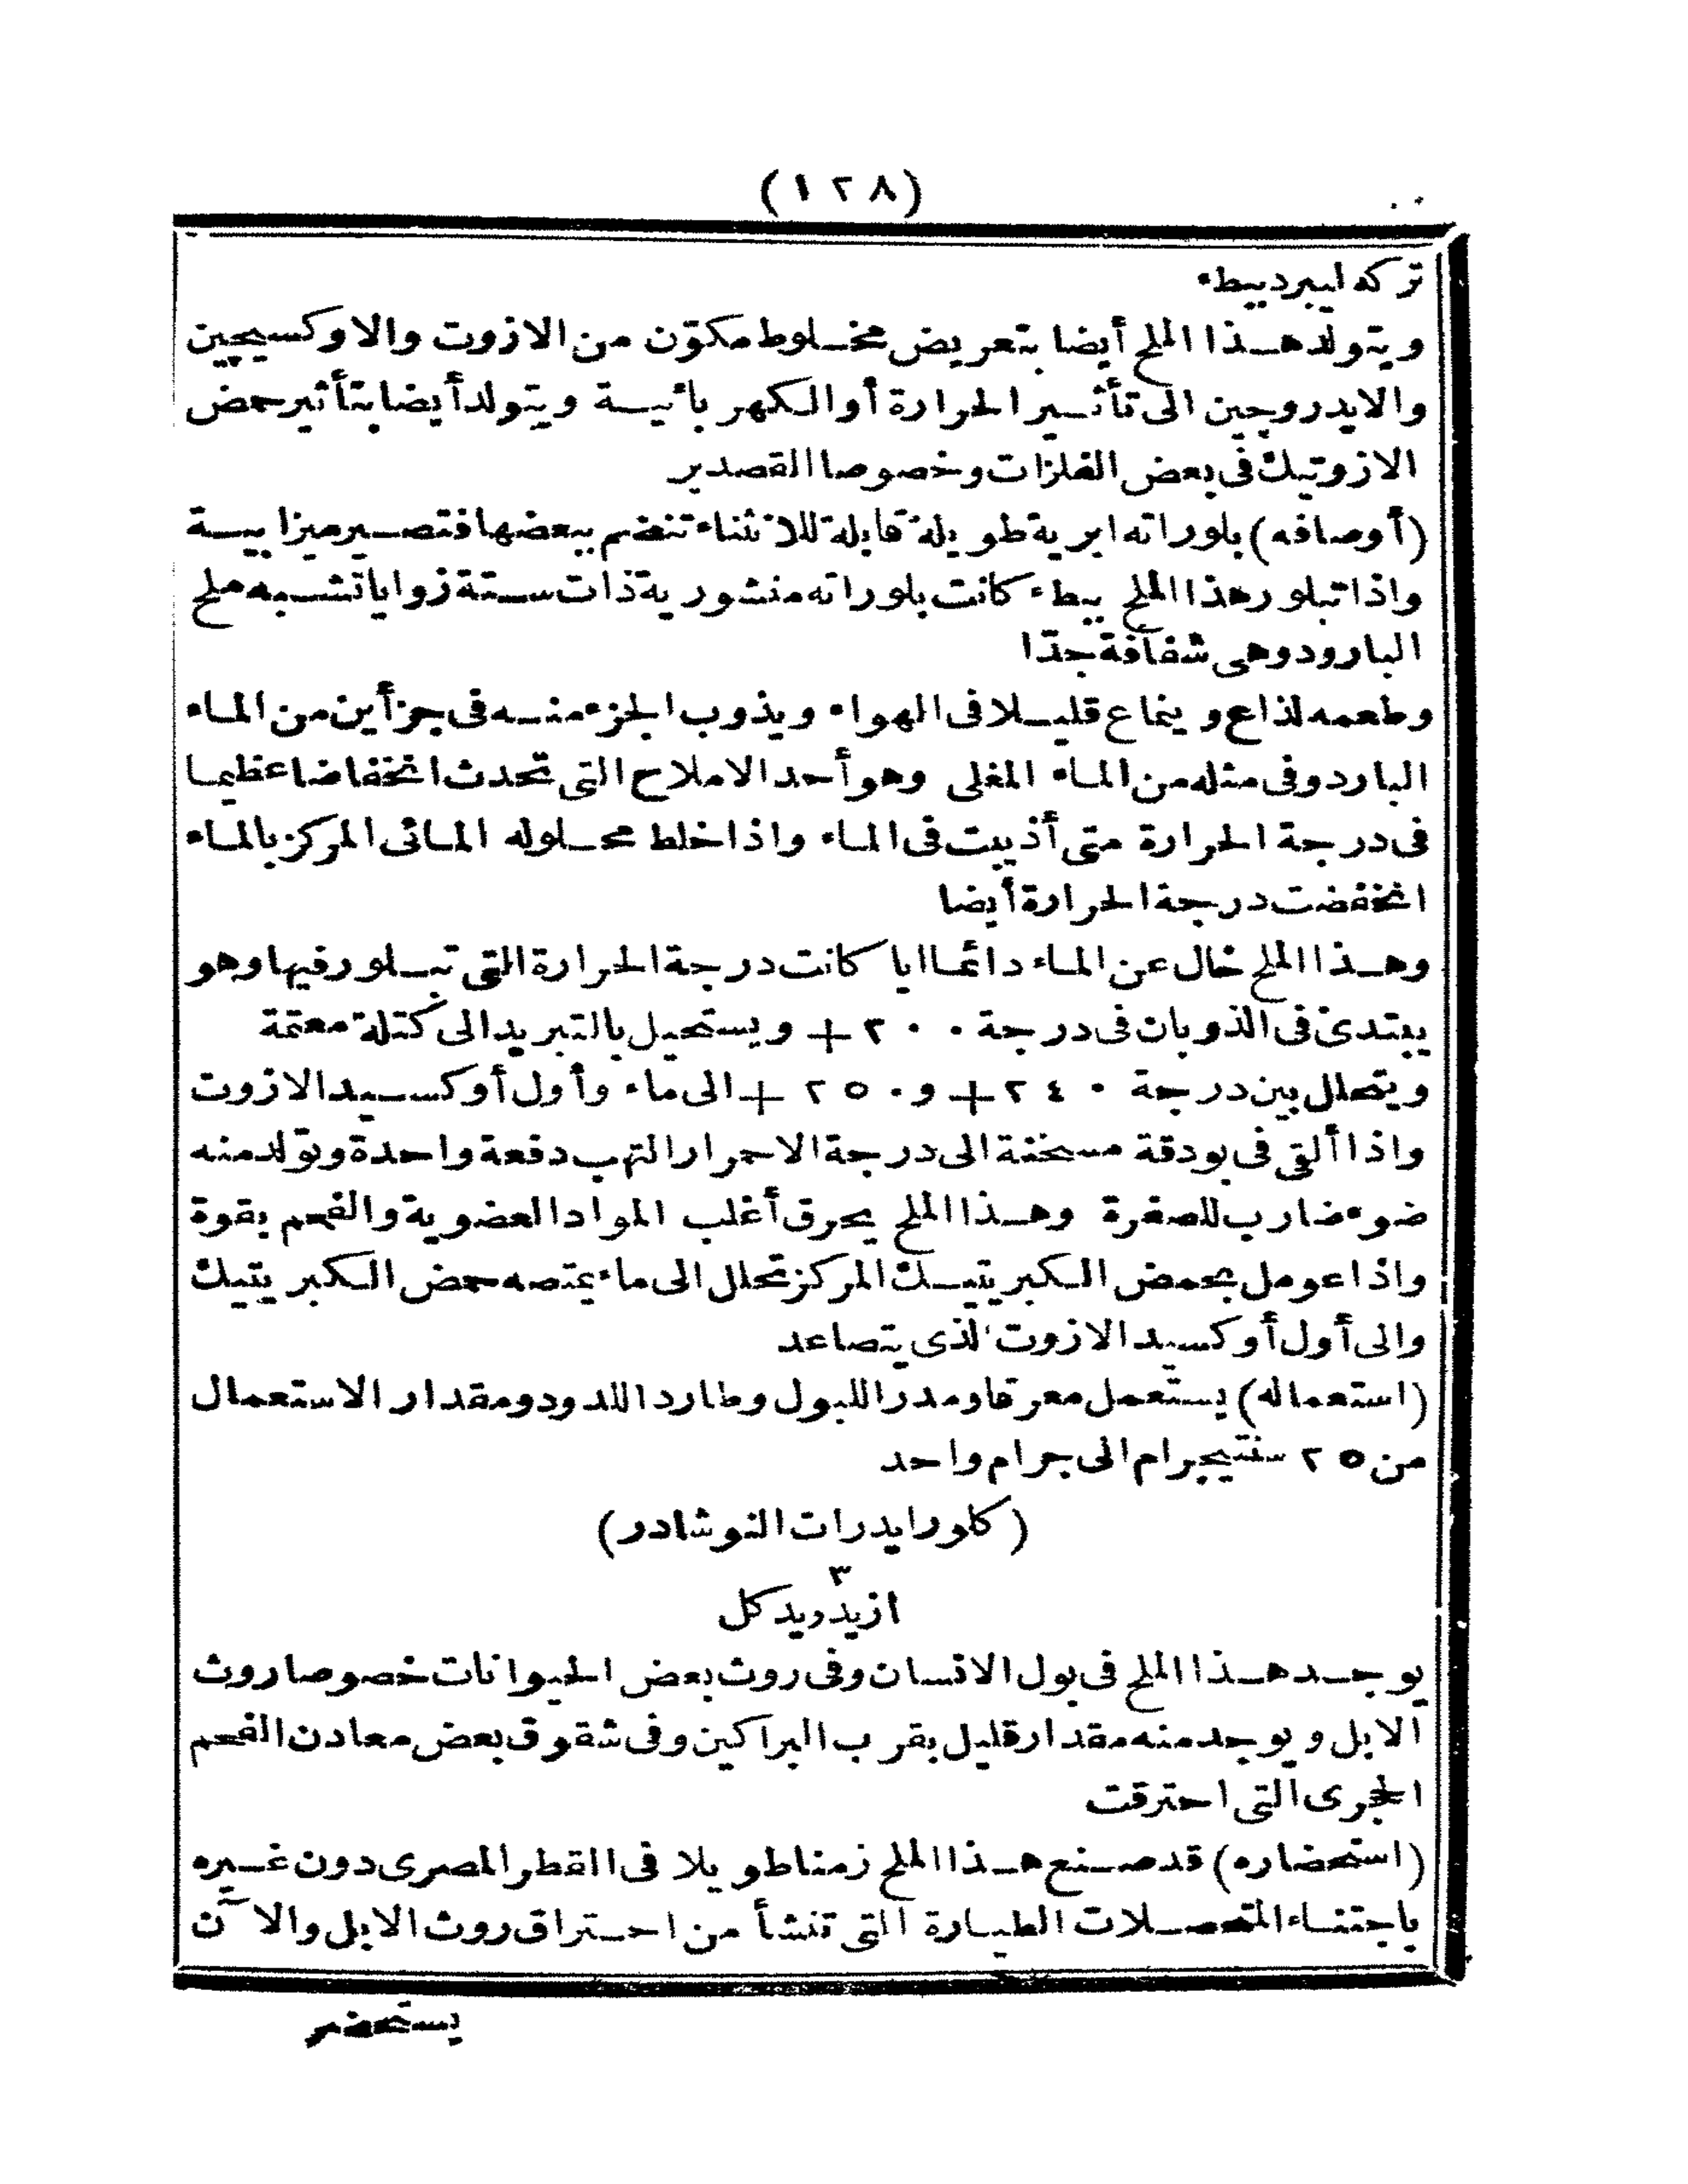 (١٢٨)
تركه ليبرد ببطء
ويتولد هذا الملح أيضا بتعريض مخلوط مكوّن من الازوت والاوكسيچين
والايدروچين الى تأثير الحرارة أو الكهربائية ويتولد أيضا بتأثير حمض
الازوتيك فى بعض الفلزات وخصوصا القصدير
(أوصافه) بلوراته ابرية طويلة قابلة للانثناء تنضم ببعضها فتصير ميزابية
واذا تبلور هذا الملح ببطء كانت بلوراته منشورية ذات ستة زوايا تشبه ملح
البارود وهى شفافة جدّا
وطعمه لذاع وينماع قليلا فى الهواء ويذوب الجزء منه فى جزأين من الماء
البارد وفى مثله من الماء المغلى وهو أحد الاملاح التى تحدث انخفاضا عظيما
فى درجة الحرارة متى أذيبت فى الماء واذا خلط محلوله المائى المركز بالماء
انخفضت درجة الحرارة أيضا
وهذا الملح خال عن الماء دائما ايا كانت درجة الحرارة التى تبلور فيها وهو
يبتدئ فى الذوبان فى درجة ٢٠٠ + ويستحيل بالتبريد الى كتلة معتمة
ويتحلل بين درجة ٢٤٠ + و ٢٥٠ + الى ماء وأول أوكسيد الازوت
واذا ألقى فى بودقة مسخنة الى درجة الاحمرار التهب دفعة واحدة وتولد منه
ضوء ضارب للصفرة وهذا الملح يحرق أغلب المواد العضوية والفحم بقوة
واذا عومل بحمض الكبريتيك المركز تحلل الى ماء يمتصه حمض الكبريتيك
والى أول أوكسيد الازوت الذى يتصاعد
(استعماله) يستعمل معرقا ومدرا للبول وطاردا للدود ومقدار الاستعمال
من ٢٥ سنتيجرام الى جرام واحد
(كلور ايدرات النوشادر)
٣
از يد ريد كل
يوجد هذا الملح فى بول الانسان وفى روث بعض الحيوانات خصوصا روث
الابل ويوجد منه مقدار قليل بقرب البراكين وفى شقوق بعض معادن الفحم
الحجرى التى احترقت
(استحضاره) قد صنع هذا الملح زمنا طويلا فى القطر المصرى دون غيره
باجتناء المتحصلات الطيارة التى تنشأ من احتراق روث الابل والآن
يستحضر